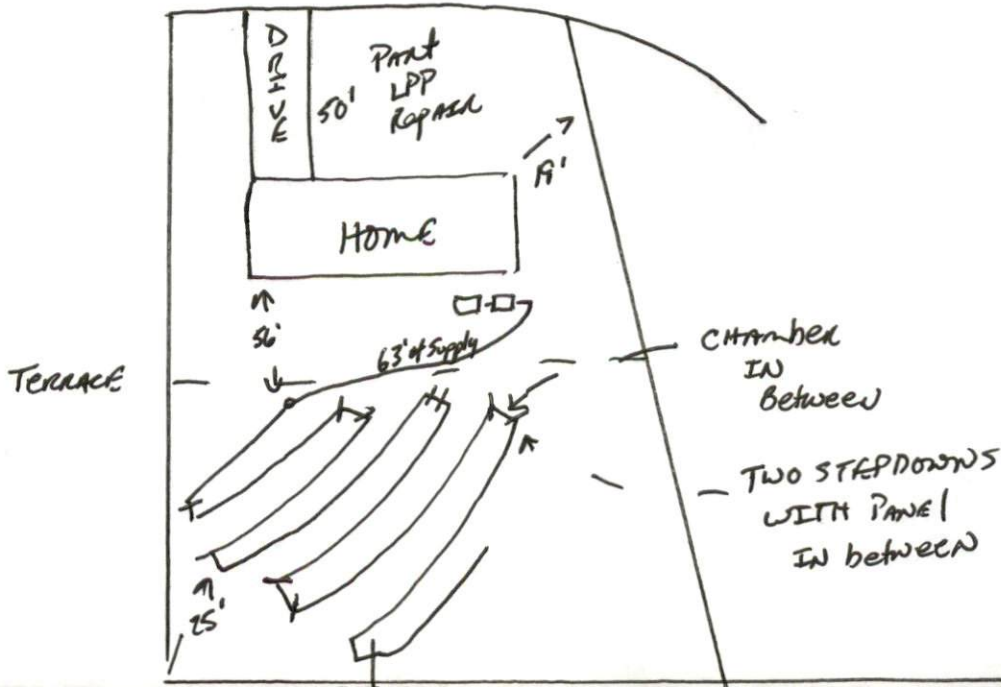 DRIVE
50'
PART
LPP
REPAIR
19'
HOME
56'
63' of Supply
TERRACE
CHAMBER
IN
Between
TWO STEPDOWNS
WITH PANEL
IN between
25'